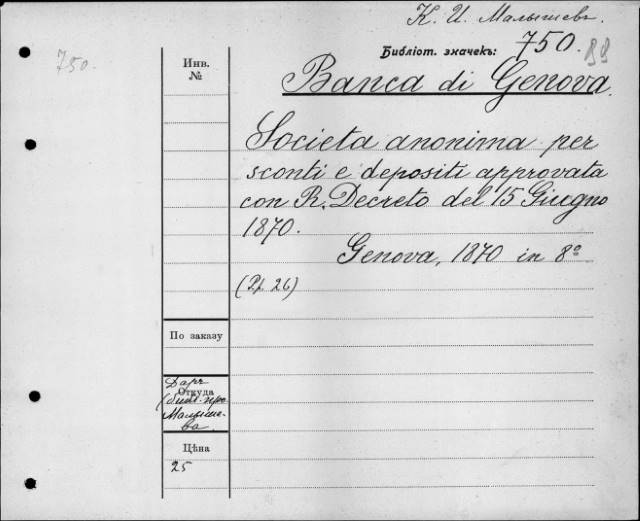 К. И. Малышевъ.
750.
Библіот. значекъ: 750.
Инв.
№
Banca di Genova
Societa anonima per
sconti e depositi approvata
con R. Decreto del 15 Giugno
1870.
Genova, 1870 in 8º
26)
По заказу
Даръ
Откуда
Малыше-
ва.
Цѣна
25